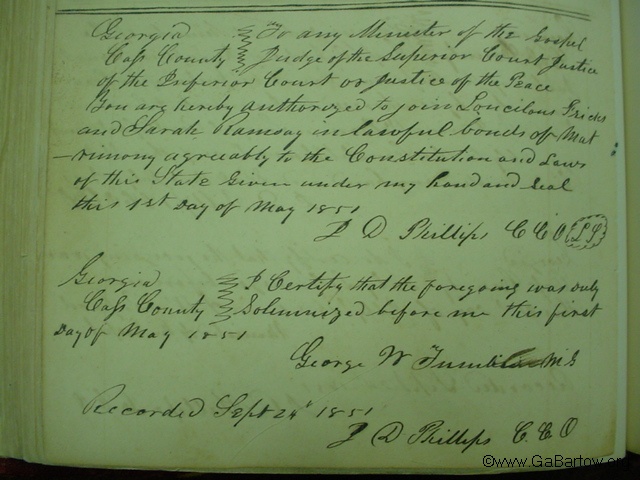 Georgia To any Minister of the Gospel
Cass County Judge of the Superior Court Justice
of the Inferior Court or Justice of the Peace
You are hereby authorized to join
and Sarah Ramsay in lawful bonds of Mat
-rimony agreeably to the Constitution and Laws
of this State Given under my hand and Seal
this 1st Day of May 1851
J D Phillips C C O LS
Georgia I Certify that the foregoing was duly
Cass County Solemnized before me this first
Day of May 1851
George W M G
Recorded Sept 24th 1851
J D Phillips C C O
©www.GaBartow.org